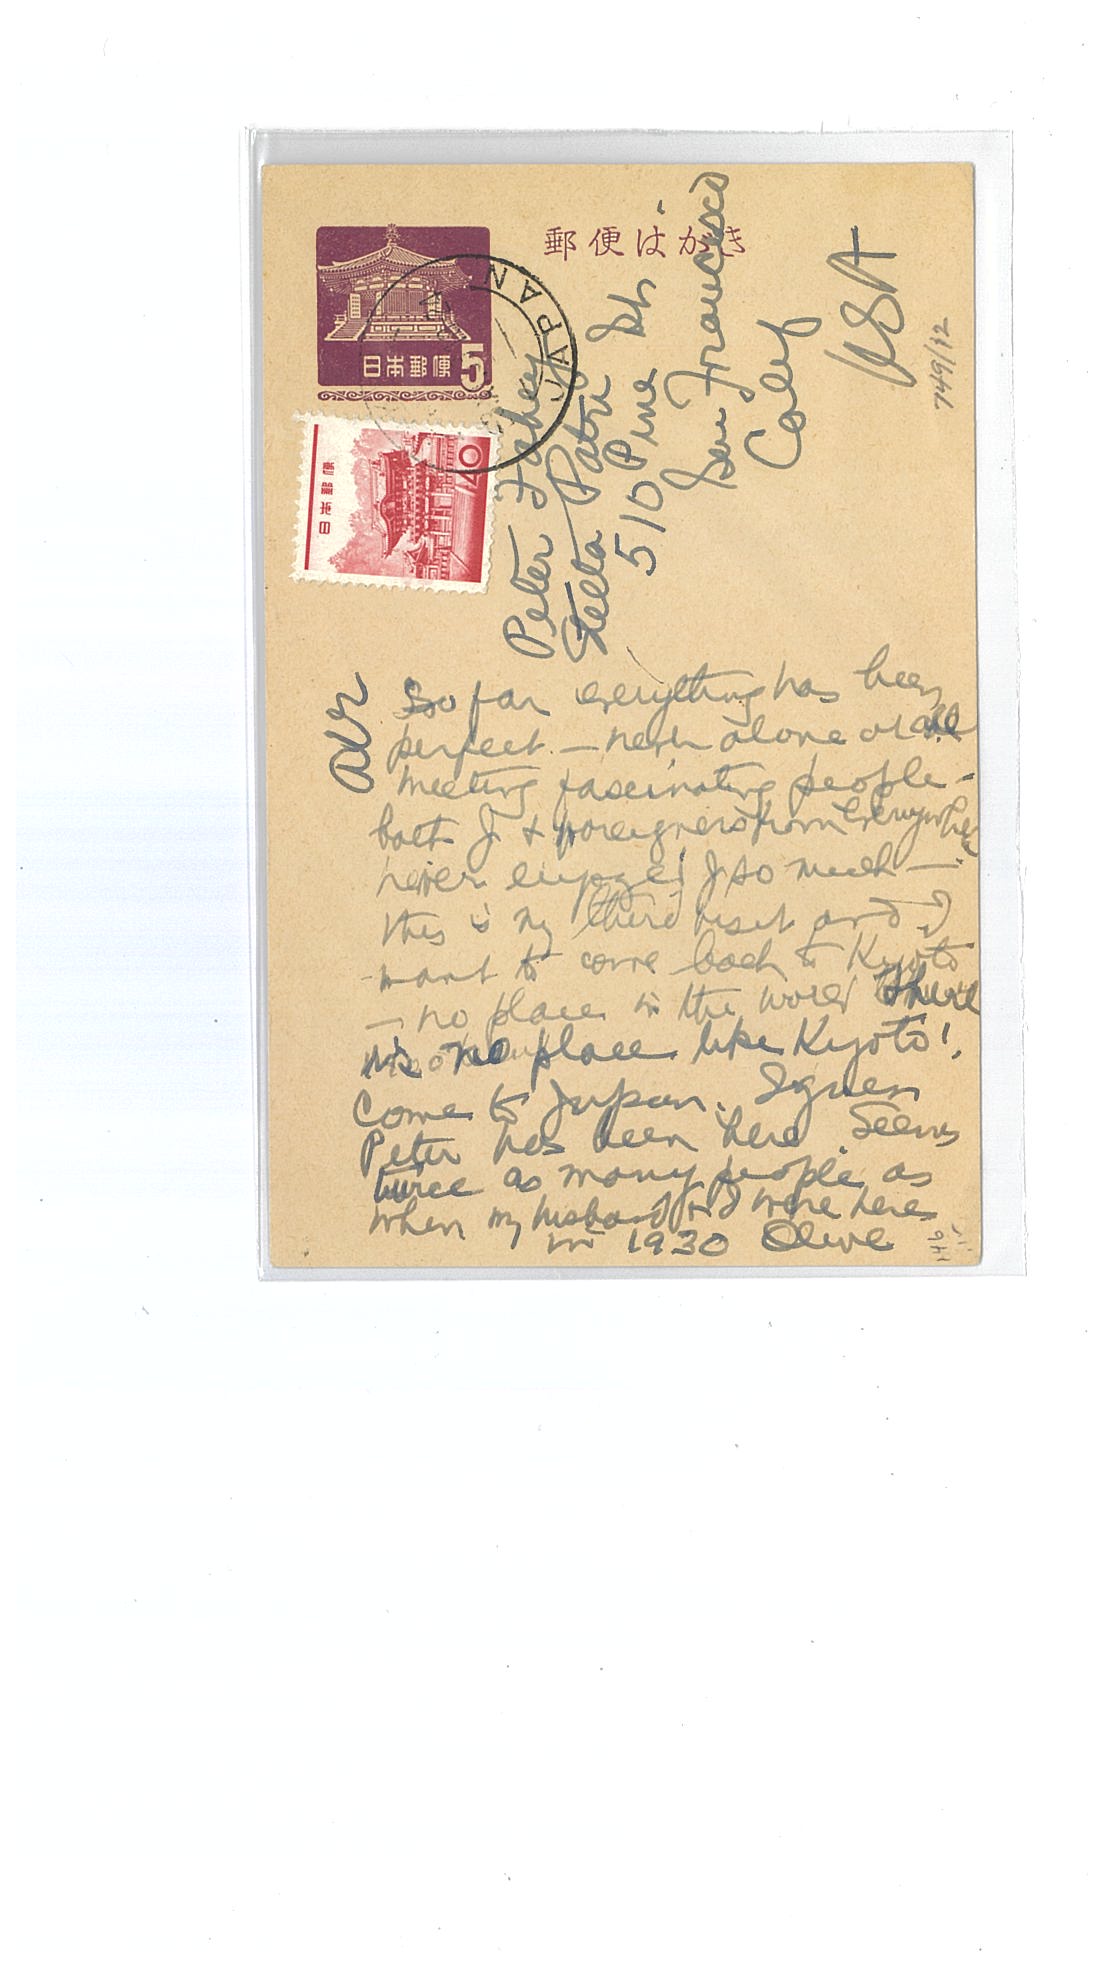 郵便はがき
日本郵便
5
JAPAN
日本郵便
40
Peter Fahey
Stella Patri
510 Pine St.
San Francisco
Calif
USA
749/32
air
So far everything has been
perfect — never alone at all
Meeting fascinating people —
both J. + foreigners from everywhere
never enjoyed J so much —
this is my third visit and I
want to come back to Kyoto
— no place in the world there
is no place like Kyoto!
Come to Japan.
Peter has been here. Seems
twice as many people as
when my husband + I were here
in 1930 Olive